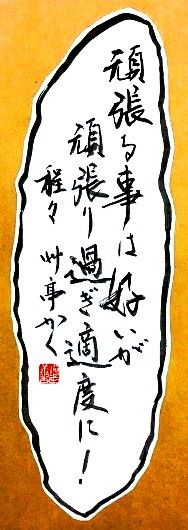 頑張る事は好いが
頑張り過ぎ適度に!
程々 艸亭かく